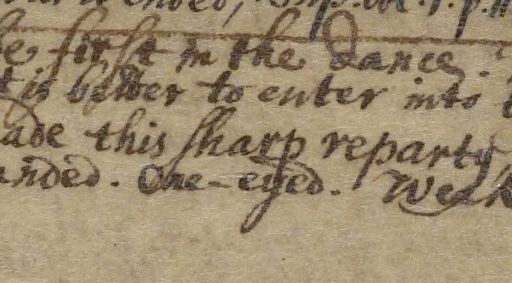 ended,
he first in the dance.
it is better to enter into
ade this sharp reparty
anded. One-eyed. Weak